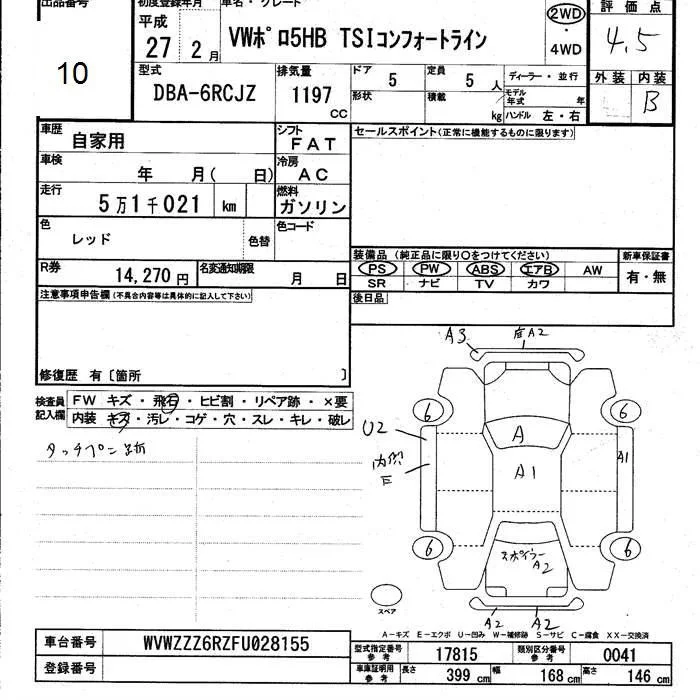 出品番号
10
初度登録年月
平成
27 2 月
車名・グレード
VWポロ5HB TSIコンフォートライン
2WD
・
4WD
評価点
4.5
型式
DBA-6RCJZ
排気量
1197
CC
ドア
5
定員
5 人
形状
積載
kg
ディーラー・並行
モデル
年式 年
ハンドル 左・右
外装 内装
B
車歴
自家用
シフト
FAT
セールスポイント(正常に機能するものに限ります)
車検
年 月( 日)
冷房
AC
走行
5万1千021 km
燃料
ガソリン
色
レッド
色替
色コード
装備品 (純正品に限り○をつけてください)
新車保証書
PS PW ABS エアB AW
SR ナビ TV カワ
有・無
R券
14,270 円
名変通知期限
月 日
後日品
注意事項申告欄(不具合内容等は具体的に記入して下さい)
修復歴 有〔箇所 〕
検査員
記入欄
FW キズ・飛石・ヒビ割・リペア跡・×要
内装 キズ・汚レ・コゲ・穴・スレ・キレ・破レ
タッチペン跡
A3
A2
6
6
U2
A
A1
A1
E
6
6
スポイラー
A2
スペア
A2
A2
A―キズ E―エクボ U―凹み W―補修跡 S―サビ C―腐食 XX―交換済
車台番号
WVWZZZ6RZFU028155
型式指定番号
参考
17815
類別区分番号
参考
0041
登録番号
車庫証明用
参考
長さ
399 cm
幅
168 cm
高さ
146 cm